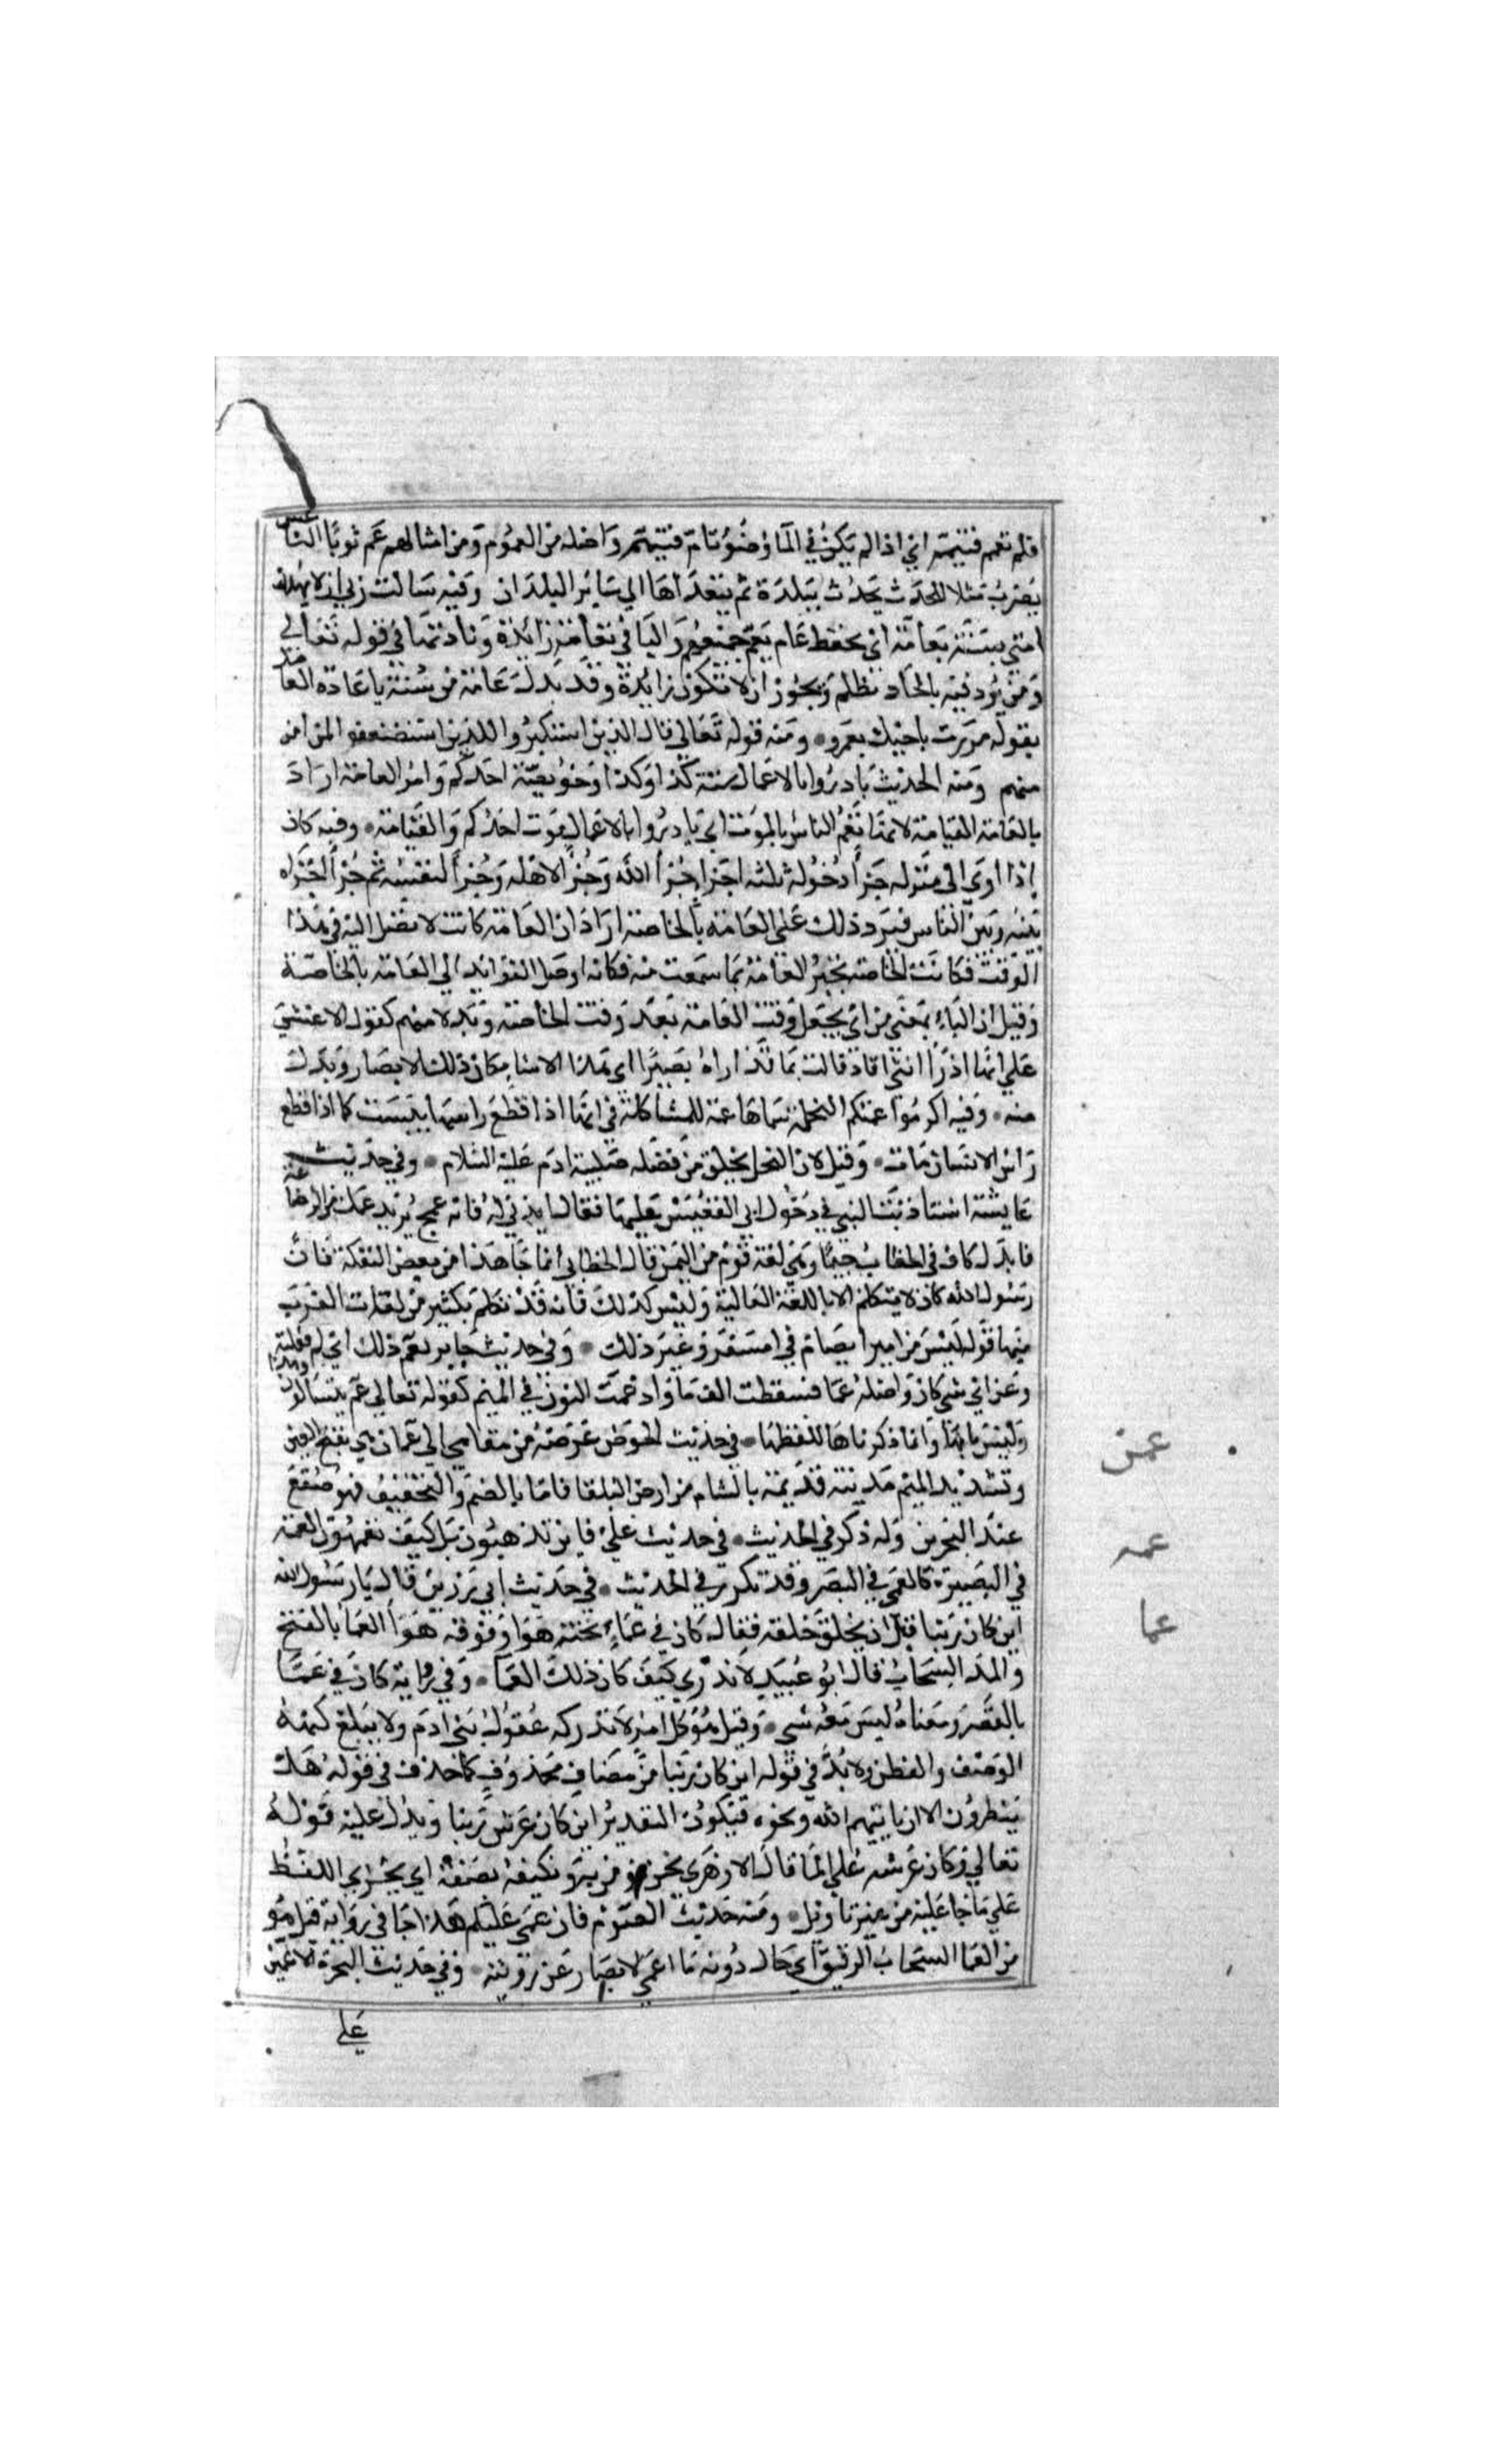 فلم تعمم فتيممه اي اذا لم يكن في الما وضوء تام فتيمم واصله من العموم ومن امثالهم عم ثوباء الناعس
يضرب مثلا للحدث يحدث ببلدة ثم يتعداها الي ساير البلدان وفيه سالت ربي ان لا يهلك
امتي بسنة بعامة اي بقحط عام يعم جميعهم والبا في بعامة زائدة زيادتها في قوله تعالي
ومن يرد فيه بالحاد بظلم ويجوز ان لا تكون زايدة وقد بدل عامة من سنة باعادة العامل
بقوله مررت باخيك بعمرو ومنه قوله تعالي قال الذين استكبروا للذين استضعفوا لمن امن
منهم ومنه الحديث بادروا بالاعمال ستة كذا وكذا وخويصة احدكم وامر العامة اراد
بالعامة القيامة لانها تعم الناس بالموت اي بادروا بالاعمال موت احدكم والقيامة وفيه كان
اذا اوي الي منزله جزأ دخوله ثلثه اجزا جزأ الله وجزأ لاهله وجزأ لنفسه ثم جزأ جزاه
بينه وبين الناس فيرد ذلك علي العامة بالخاصة اراد ان العامة كانت لا تصل اليه في هذا
الوقت فكانت الخاصة تخبر العامة بما سمعت منه فكانه اوصل الفوائد الي العامة بالخاصة
وقيل ان الباء بمعني من اي يجعل وقت العامة بعد وقت الخاصة وبدلا منهم كقول الاعشي
علي انها اذ رأ انثي اقاد قالت بما قد اراه بصيرا اي هذا الاعشا مكان ذلك الابصار وبدل
منه وفيه اكرموا عمتكم النخلة سماها عمة للمشاكلة في انها اذا قطع راسها يبست كما اذا قطع
راس الانسان مات وقيل لان النخل يخلق من فضله طينة ادم عليه السلام وفي حديث
عايشة استاذنت النبي في دخول ابي القعيس عليها فقال ايذني له فانه عمج يريد عمك من الرضاعة
فابدل كاف في الخطاب جيما وهي لغة قوم من اليمن قال الخطابي انما جا هذا من بعض النقلة فان
رسول الله كان لا يتكلم الا باللغة العالية وليس كذلك فانه قد تكلم بكثير من لغات العرب
منها قوله ليس من امبر امصيام في امسفر وغير ذلك وفي حديث جابر فعم ذلك اي لم فعلته
وعن اي شي كان واصله عما فسقطت الف ما وادغمت النون في الميم كقوله تعالي عم يتسالون وهذا
وليس بابها وانما ذكرناها للفظها في حديث الحوض عرضه من مقامي الي عمان هي بفتح العين
وتشديد الميم مدينة قديمة بالشام من ارض البلقا فاما بالضم والتخفيف فهو صقع
عند البحرين وله ذكر في الحديث في حديث علي فاين تذهبون بل كيف تعمهون العمه
في البصيرة كالعمي في البصر وقد تكرر في الحديث في حديث ابي رزين قال يا رسول الله
اين كان ربنا قبل ان يخلق خلقه فقال كان في عماء تحته هوا وفوقه هوا العما بالفتح
والمد السحاب قال ابو عبيد لا ندري كيف كان ذلك العمآ وفي رواية كان في عما
بالقصر ومعناه ليس معه شي وقيل هو كل امر لا تدركه عقول بني ادم ولا يبلغ كنهه
الوصف والفطن ولا بد في قوله اين كان ربنا من مضاف محذوف كما حذف في قوله هل
ينظرون الا ان ياتيهم الله ونحوه فيكون التقدير اين كان عرش ربنا ويدل عليه قوله
تعالي وكان عرشه علي الما قال الازهري نحن نومن به ولا نكيفه بصفة اي يجري اللفظ
علي ما جا عليه من غير تاويل ومنه حديث الصوم فان عمي عليكم هكذا جا في رواية قيل هو
من العما السحاب الرقيق اي حال دونه ما اعمي الابصار عن رويته وفي حديث الهجرة لاعمين
علي
عمن
عمه
عما